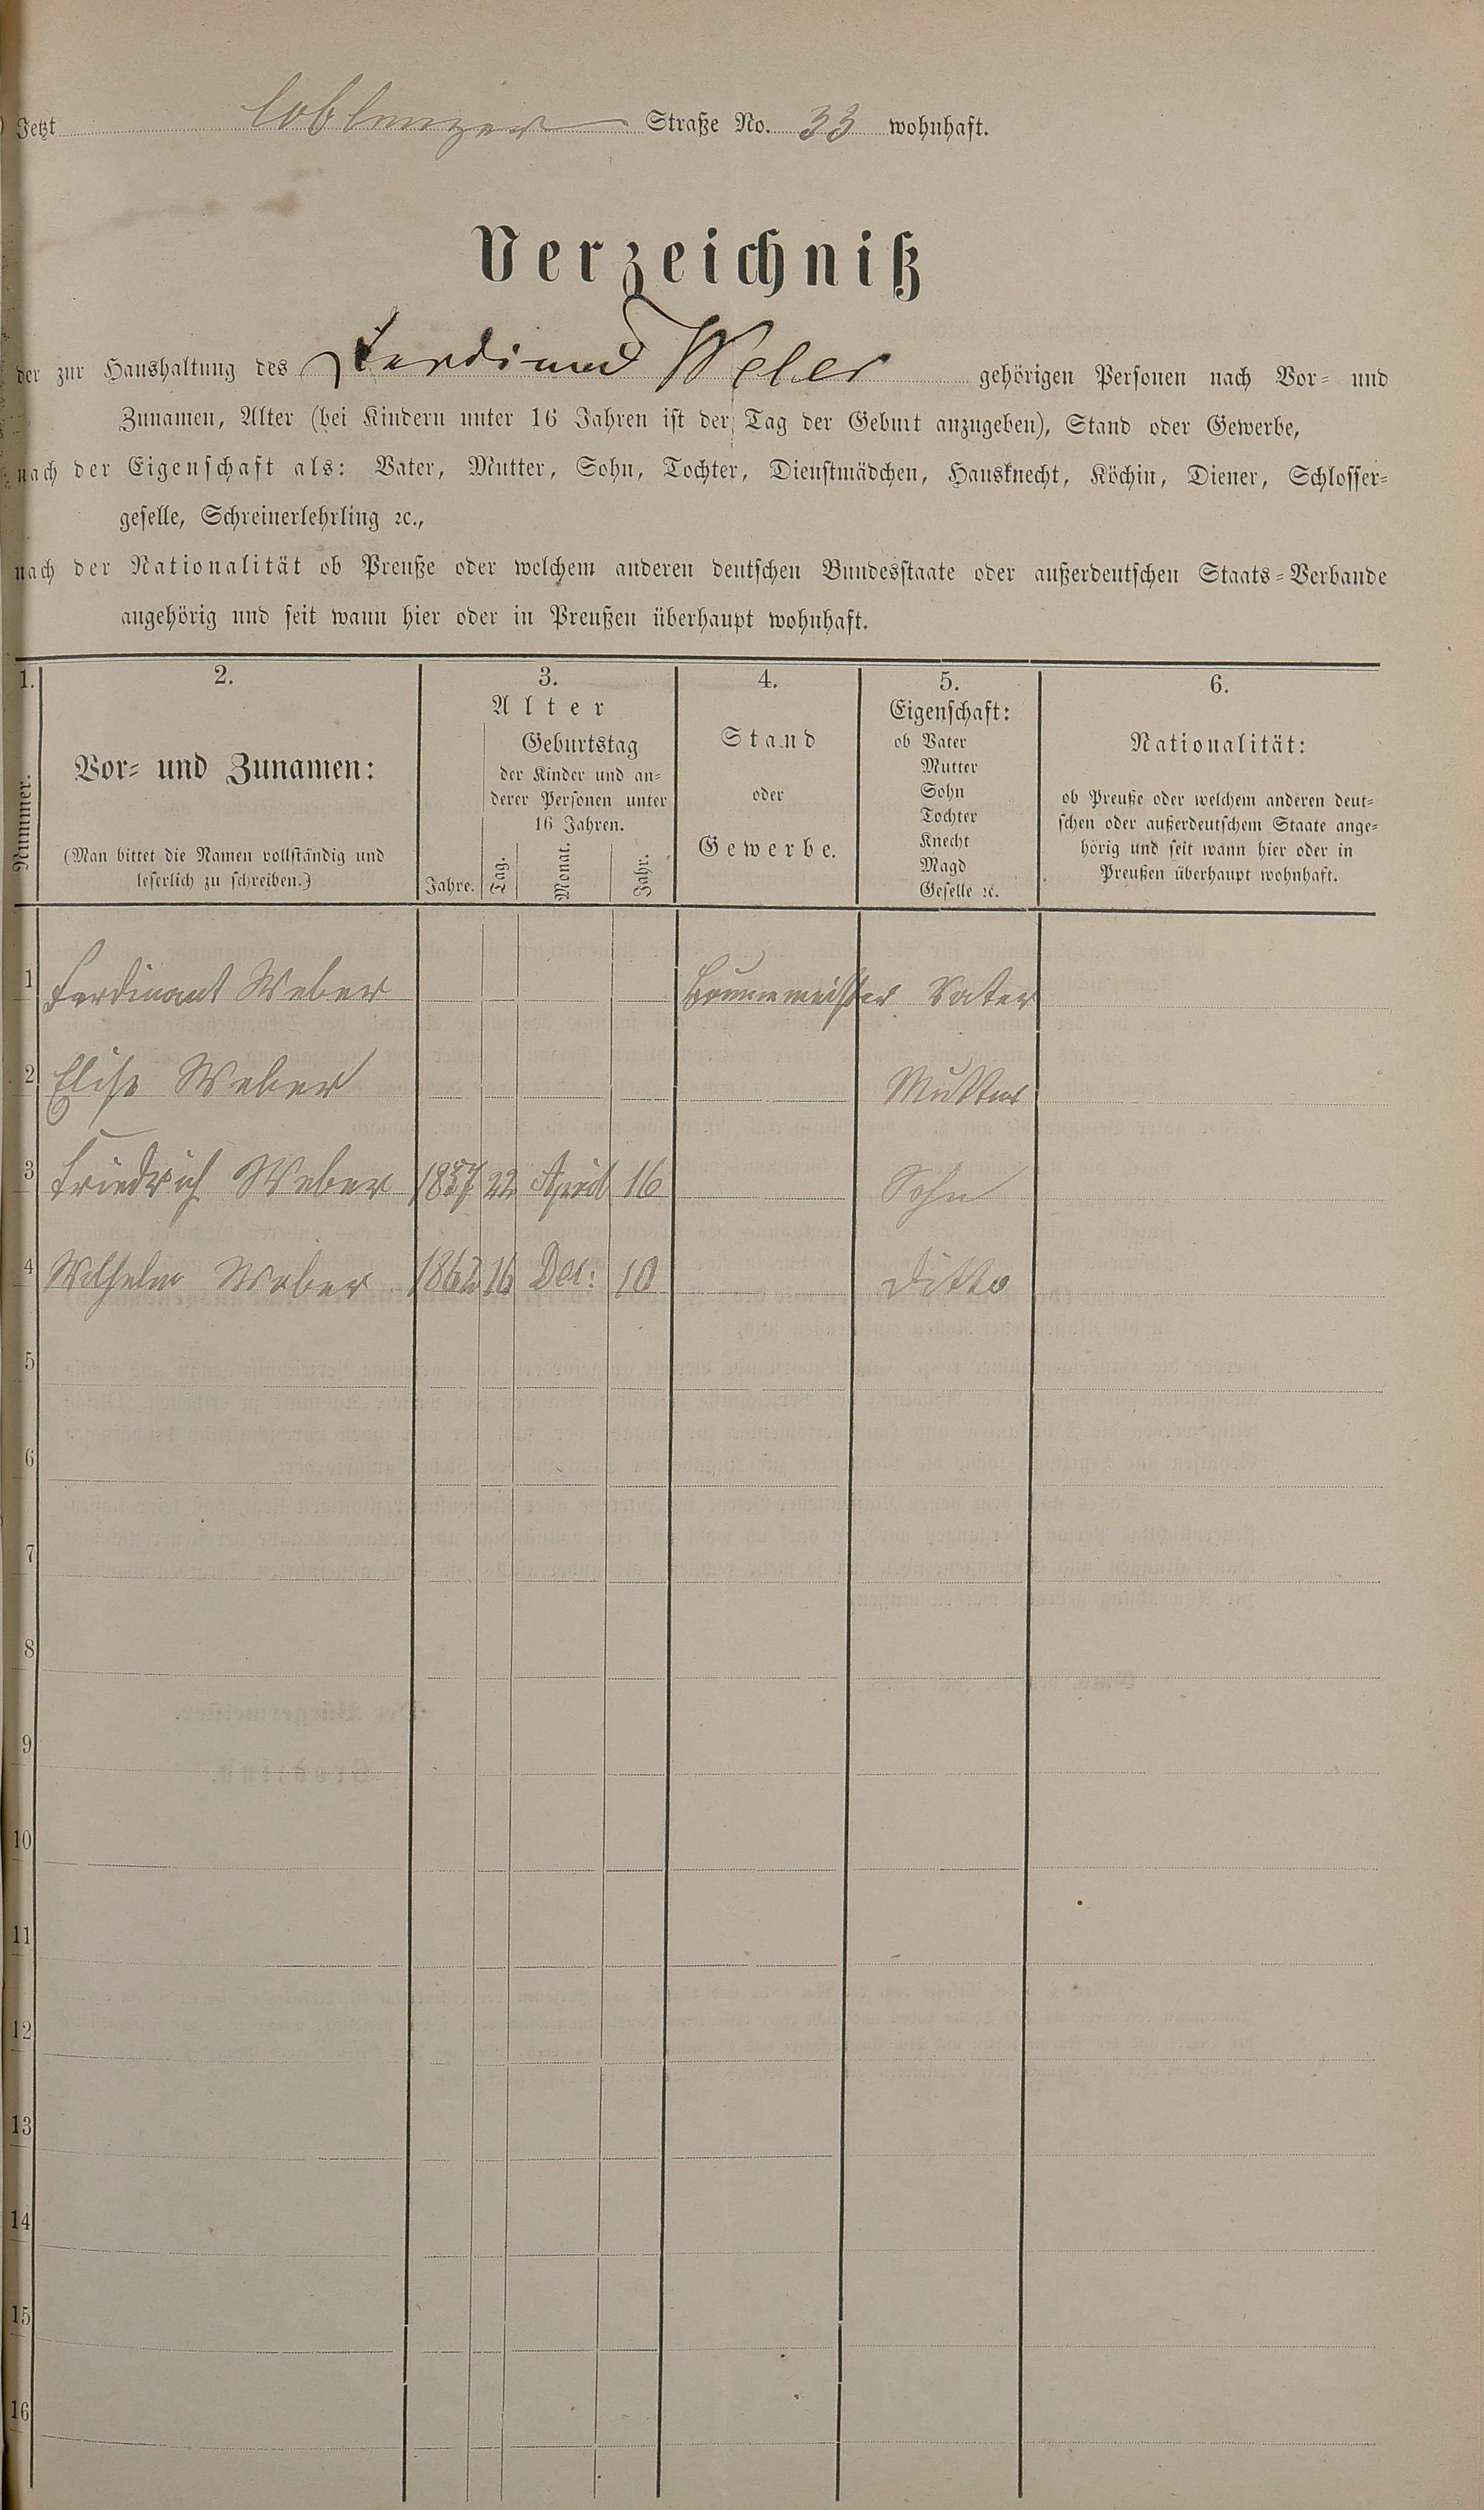 Jetzt Coblenzer Straße No. 33 wohnhaft.
Verzeichniß
der zur Haushaltung des Ferdinand Weber gehörigen Personen nach Vor- und
Zunamen, Alter (bei Kindern unter 16 Jahren ist der Tag der Geburt anzugeben), Stand oder Gewerbe,
nach der Eigenschaft als: Vater, Mutter, Sohn, Tochter, Dienstmädchen, Hausknecht, Köchin, Diener, Schlosser-
geselle, Schreinerlehrling ꝛc.,
nach der Nationalität ob Preuße oder welchem anderen deutschen Bundesstaate oder außerdeutschen Staats-Verbande
angehörig und seit wann hier oder in Preußen überhaupt wohnhaft.
1.
Nummer.
2.
Vor- und Zunamen:
(Man bittet die Namen vollständig und
leserlich zu schreiben.)
3.
Alter
Geburtstag
der Kinder und an-
derer Personen unter
16 Jahren.
Jahre. Tag. Monat. Jahr.
4.
Stand
oder
Gewerbe.
5.
Eigenschaft:
ob Vater
Mutter
Sohn
Tochter
Knecht
Magd
Geselle ꝛc.
6.
Nationalität:
ob Preuße oder welchem anderen deut-
schen oder außerdeutschem Staate ange-
hörig und seit wann hier oder in
Preußen überhaupt wohnhaft.
1 Ferdinant Weber Vater
2 Elise Weber Mutter
3 Friedrich Weber 1857 22 April 16 Sohn
4 Wilhelm Weber 1862 16 Dec: 10 Ditto
5
6
7
8
9
10
11
12
13
14
15
16